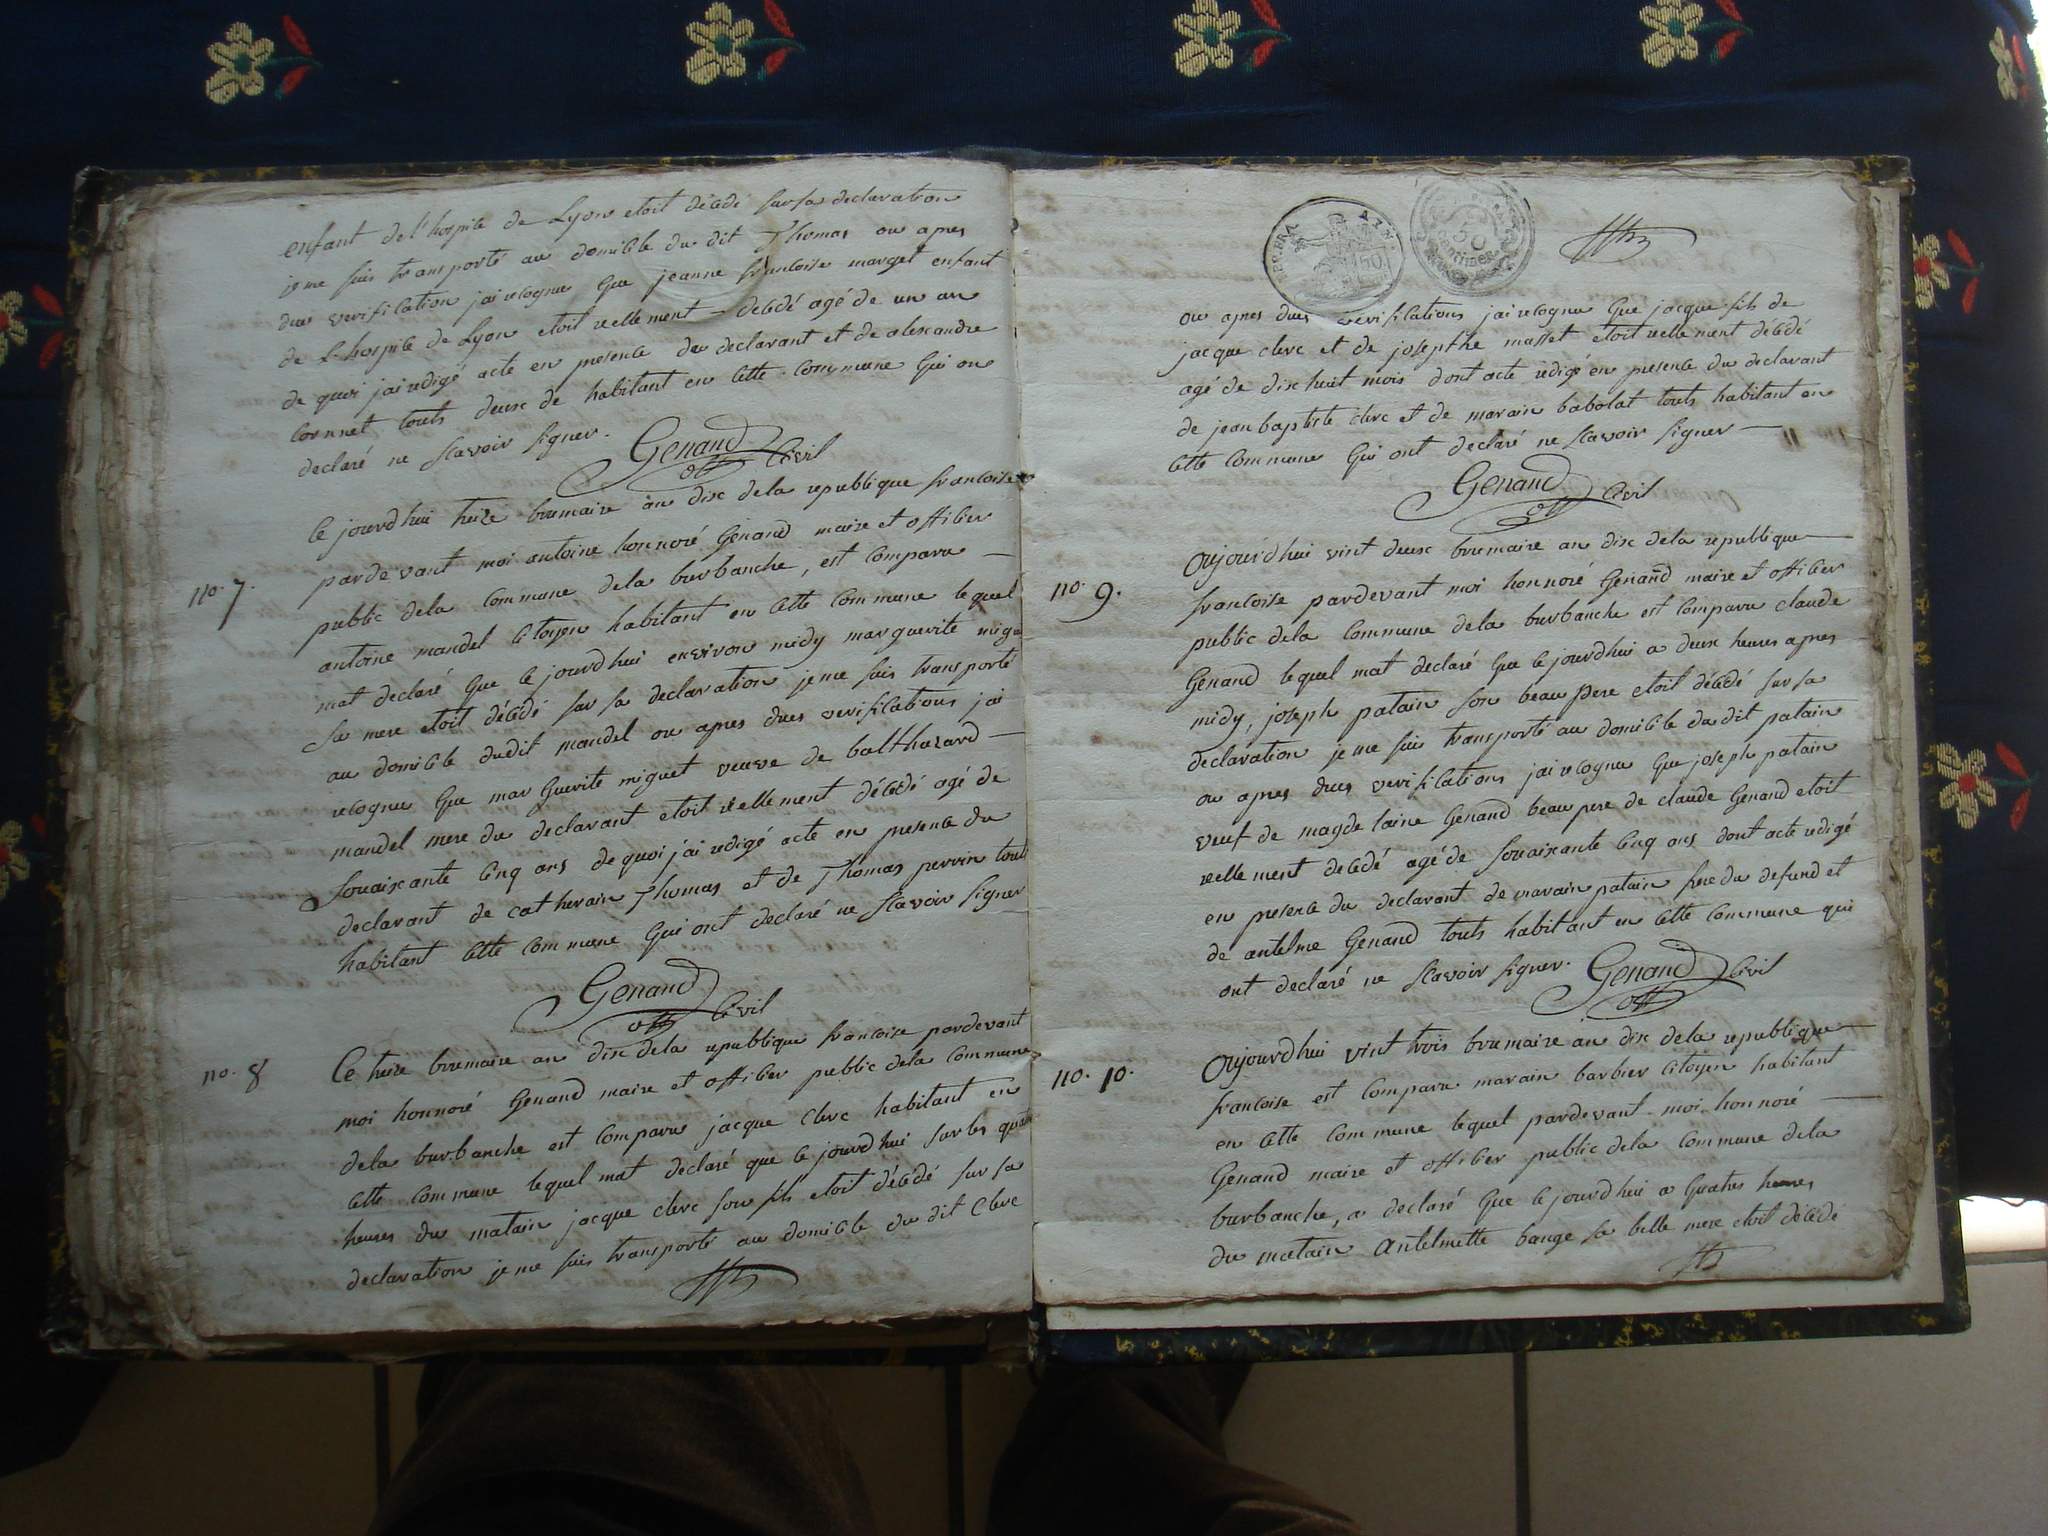 enfant de l'hospice de Lyon etoit décédé sur sa declaration
je me suis transporté au domicile du dit Thomas ou apres
dus verification jai recognu que jeanne francoise marget enfant
de L'hospice de Lyon etoit reellement - décédé agé de un an
de quoi jai redigé acte en presence du declarant et de alexandre
Cornnet touts deux de habitant en cette commune qui on
declaré ne scavoir signer.
Genand
off Civil
no. 7.
Ce jourdhui treize brumaire an dix de la republique francoise
pardevant moi antoine honnoré Genand maire et officier
public de la commune de la burbanche, est comparu —
antoine mandel citoyen habitant en cette commune lequel
mat declaré que ce jourdhui environ midy marguerite mig
sa mere etoit décédé sur sa declaration je me suis transporté
au domicile dudit mandel ou apres dues verifications jai
recognu que marguerite miguet veuve de balthazard —
mandel mere du declarant etoit réellement décédé agé de
souaixante cinq ans de quoi j'ai redigé acte en presence du
declarant de catherain Thomas et de Thomas perrin touts
habitant cette commune qui ont declaré ne scavoir signer
Genand
off Civil
no. 8
Ce treize brumaire an dix de la republique francoise pardevant
moi honnoré Genand maire et officier public de la commune
de la burbanche est comparu jacque clerc habitant en
cette commune lequel mat declaré que ce jourdhui sur les quatre
heures du matain jacque clerc son fils etoit décédé sur sa
declaration je me suis transporté au domicile du dit clerc
50
50 centimes
ou apres dues verifications jai recognu que jacque fils de
jacque clerc et de josepthe masset etoit reellement décédé
agé de dix huit mois dont acte redigé en presence du declarant
de jean baptiste clerc et de marain babolat touts habitant en
cette commune qui ont declaré ne scavoir signer —
Genand
off Civil
no. 9.
Oujourdhui vint deux brumaire an dix de la republique
francoise pardevant moi honnoré Genand maire et officier
public de la commune de la burbanche est comparu claude
Genand lequel mat declaré que ce jourdhui a deux heures apres
midy, joseph patain son beau pere etoit décédé sur sa
declaration je me suis transporté au domicile du dit patain
ou apres dues verifications jai recognu que joseph patain
veuf de magdelaine Genand beau pere de claude Genand etoit
reellement décédé agé de souaixante cinq ans dont acte redigé
en presence du declarant de marain patain frere du defund et
de antelme Genand touts habitant en cette commune qui
ont declaré ne scavoir signer.
Genand
off Civil
no. 10.
Oujourdhui vint trois brumaire an dix de la republique
francoise est comparu marain barbier citoyen habitant
en cette commune lequel pardevant moi honnoré —
Genand maire et officier public de la commune de la
burbanche, a declaré que ce jourdhui a quatres heures
du matain Antelmette bange sa belle mere etoit décédé